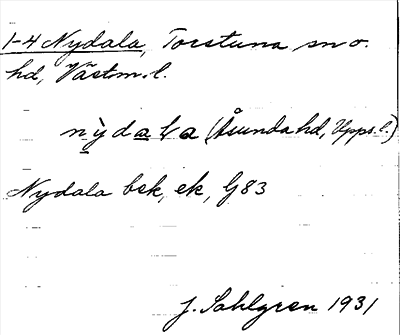 1-4 Nydala, Torstuna sn o.
hd, Västm. l.
nỳdala (Åsunda hd, Upps. l.)
Nydala bsk, ek, G83
J. Sahlgren 1931